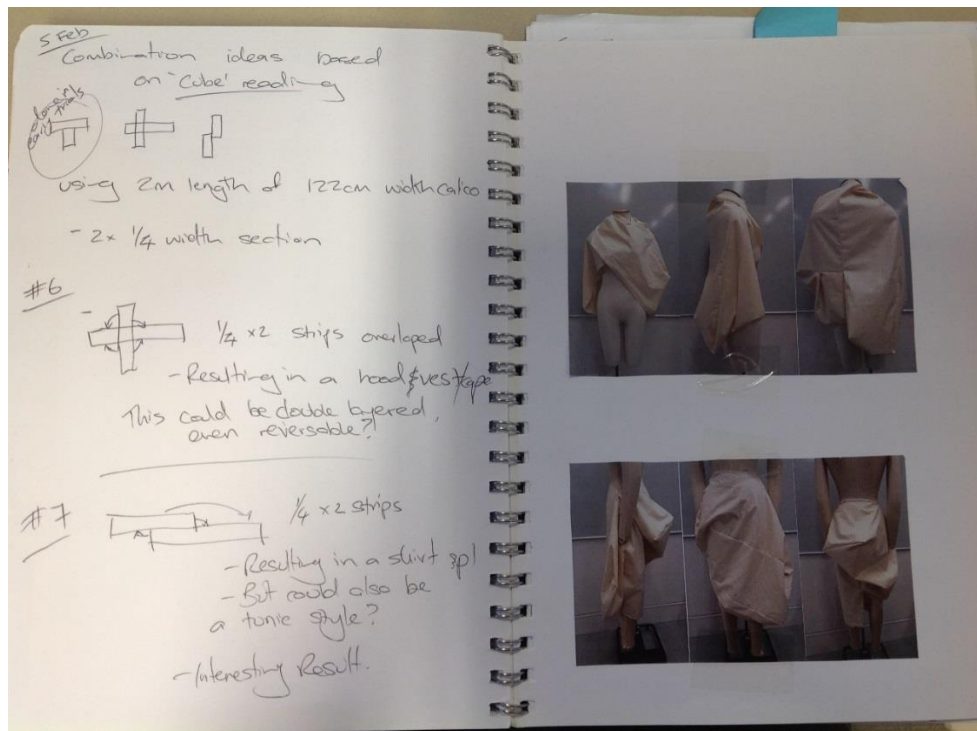 5 Feb
Combination ideas based
on 'Cube' reading
trials
using 2m length of 122cm width calico
- 2x 1/4 width section
#6
1/4 x2 strips overlaped
- Resulting in a hood & vest/cape
This could be double layered,
even reversable?
#7
1/4 x2 strips
- Resulting in a skirt
- But could also be
a tunic style?
- Interesting Result.